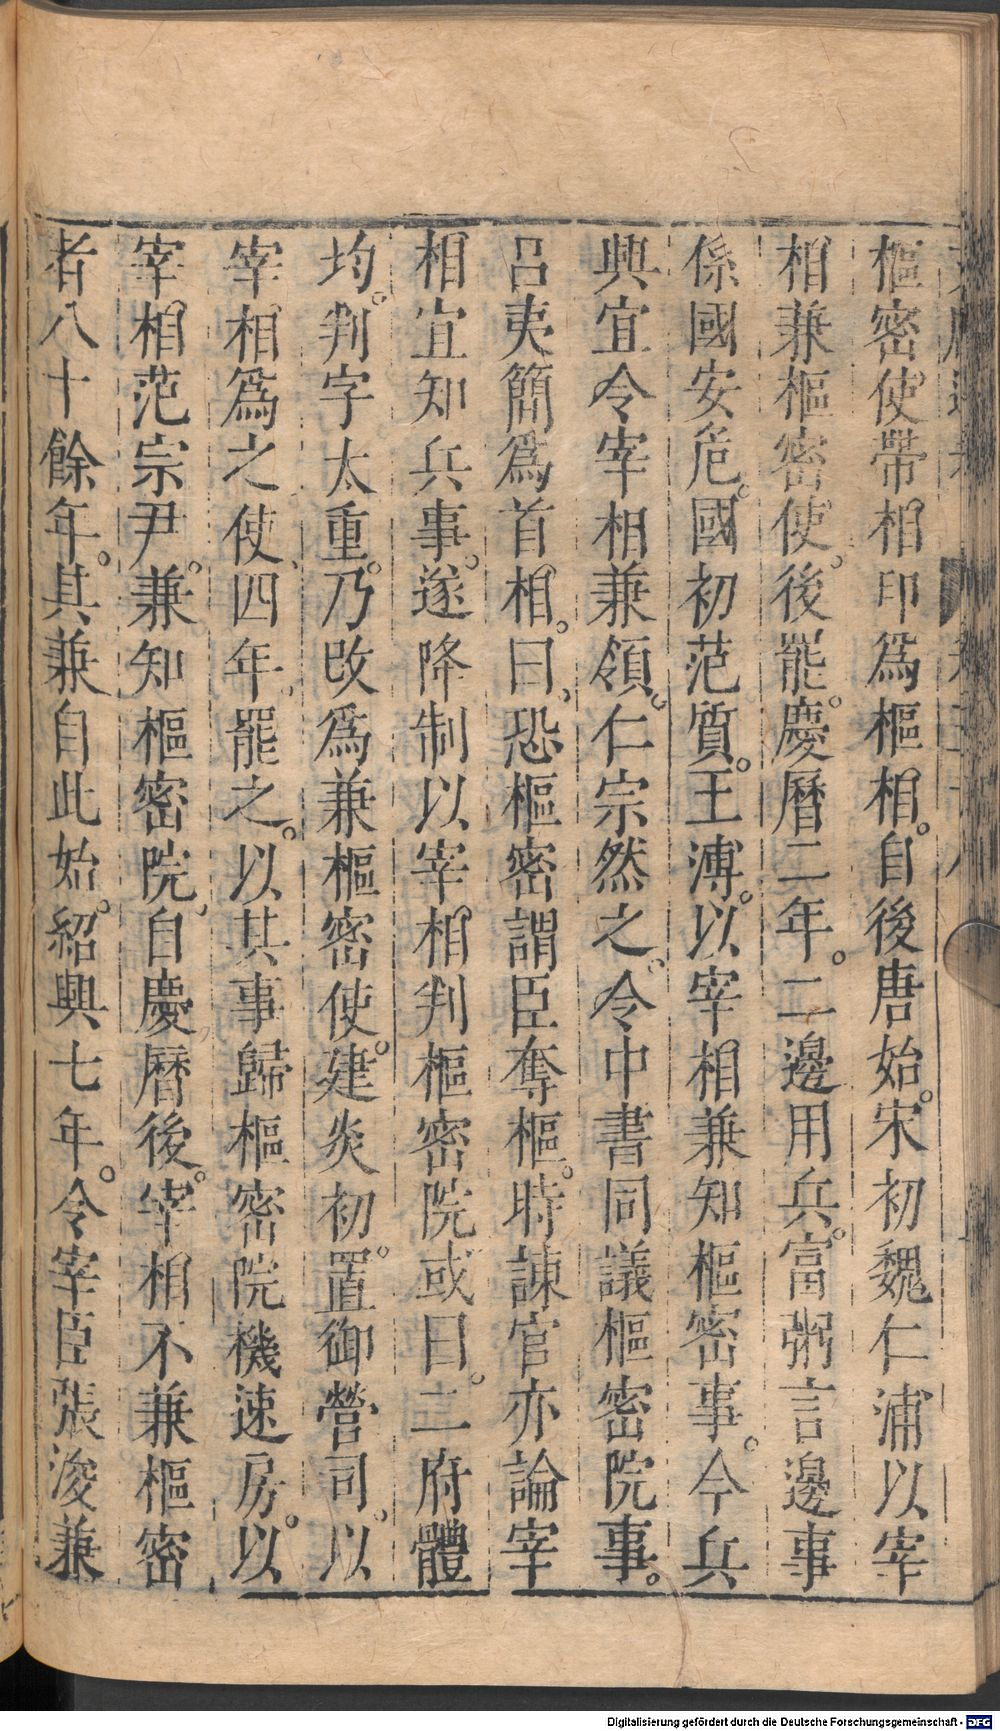 樞密使帶相印爲樞相。自後唐始。宋初魏仁浦以宰
相兼樞密使。後罷。慶曆二年。二邊用兵。富弼言邊事
係國安危。國初范質。王溥。以宰相兼知樞密事。今兵
興宜令宰相兼領。仁宗然之。令中書同議樞密院事。
呂夷簡爲首相。曰、恐樞密謂臣奪樞。時諫官亦論宰
相宜知兵事。遂降制以宰相判樞密院或曰。二府體
均。判字太重。乃改爲兼樞密使。建炎初。置御營司、以
宰相爲之使、四年、罷之。以其事歸樞密院機速房。以
宰相范宗尹。兼知樞密院、自慶曆後。宰相不兼樞密
者八十餘年。其兼自此始。紹興七年。令宰臣張浚兼
Digitalisierung gefördert durch die Deutsche Forschungsgemeinschaft - DFG